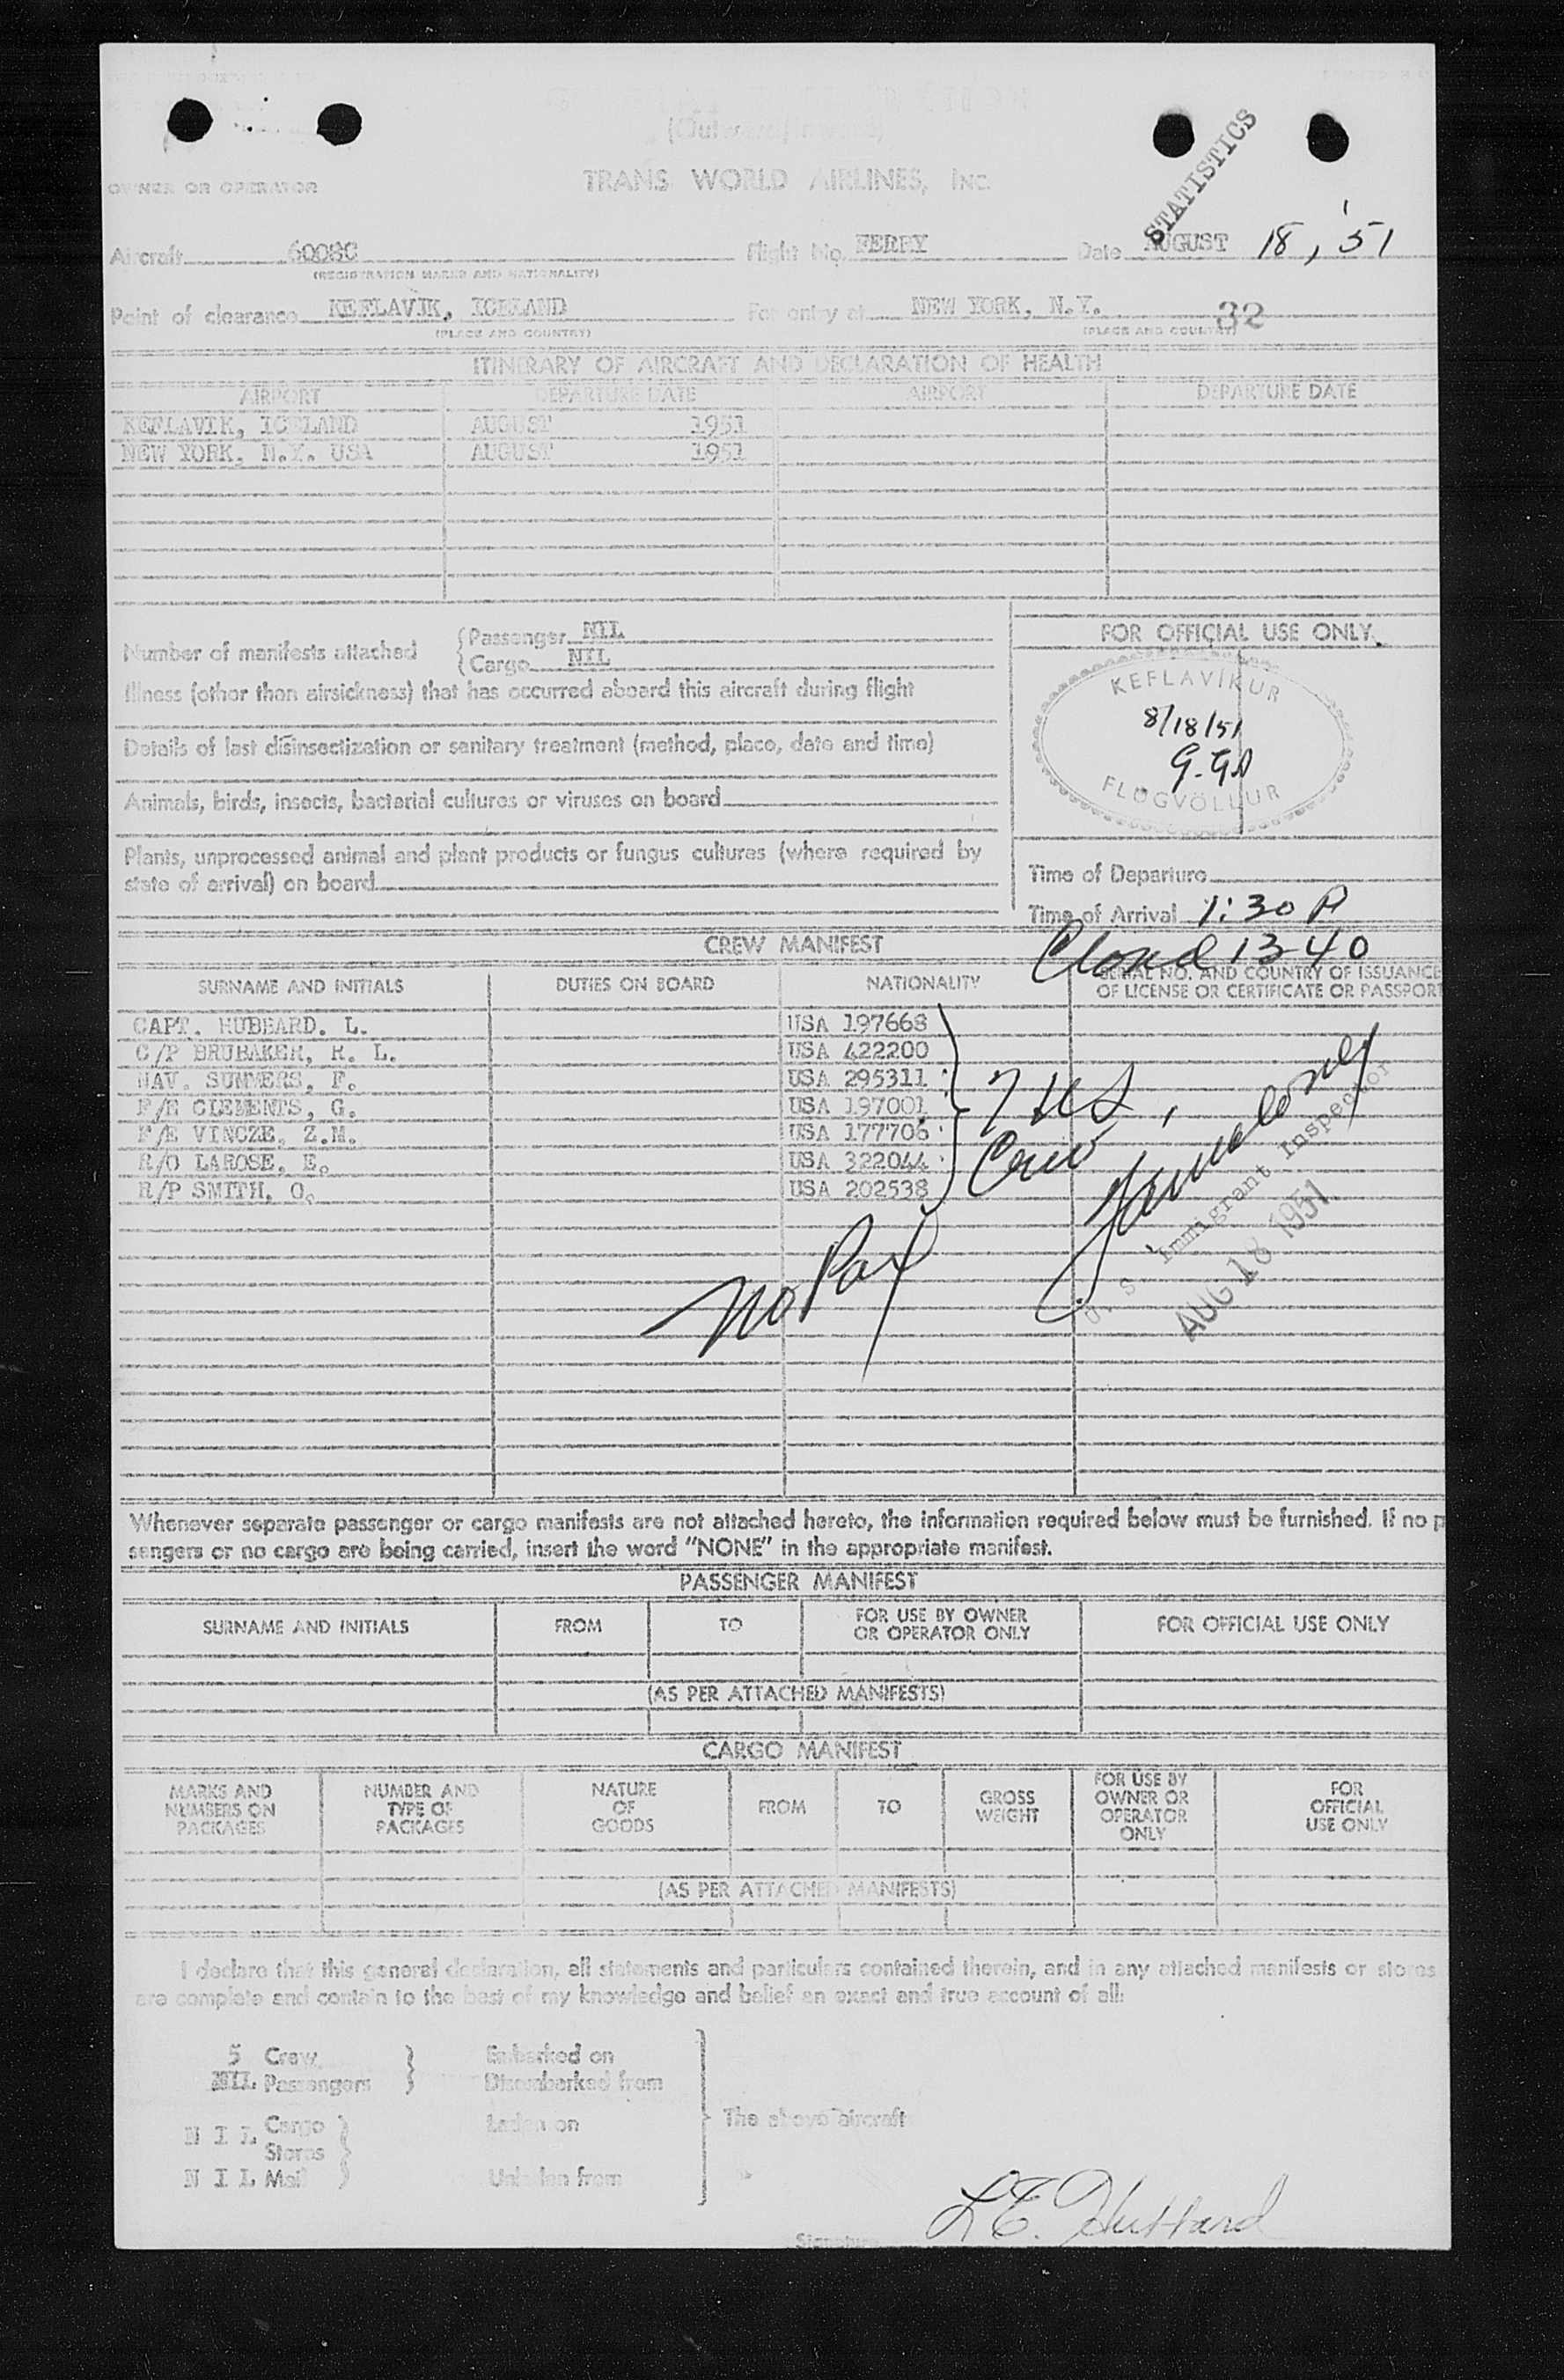 STATISTICS
OWNER OR OPERATOR TRANS WORLD AIRLINES, INC.
Aircraft 6008C Flight No. FERRY Date AUGUST 18, '51
(REGISTRATION MARKS AND NATIONALITY)
Point of clearance KEFLAVIK, ICELAND For entry at NEW YORK, N.Y. 32
(PLACE AND COUNTRY) (PLACE AND COUNTRY)
ITINERARY OF AIRCRAFT AND DECLARATION OF HEALTH
AIRPORT DEPARTURE DATE AIRPORT DEPARTURE DATE
KEFLAVIK, ICELAND AUGUST 1951
NEW YORK, N.Y. USA AUGUST 1951
Number of manifests attached { Passenger NIL
{ Cargo NIL
Illness (other than airsickness) that has occurred aboard this aircraft during flight
Details of last disinsectization or sanitary treatment (method, place, date and time)
Animals, birds, insects, bacterial cultures or viruses on board
Plants, unprocessed animal and plant products or fungus cultures (where required by
state of arrival) on board
FOR OFFICIAL USE ONLY
KEFLAVÍKUR
8/18/51
FLUGVÖLLUR
Time of Departure
Time of Arrival 1:30 P
1340
CREW MANIFEST
SURNAME AND INITIALS DUTIES ON BOARD NATIONALITY SERIAL NO. AND COUNTRY OF ISSUANCE
OF LICENSE OR CERTIFICATE OR PASSPORT
CAPT. HUBBARD. L. USA 197668
C/P BRUBAKER, R. L. USA 422200
NAV. SUMMERS, F. USA 295311
F/E CLEMENTS, G. USA 197001
F/E VINCZE, Z.M. USA 177706
R/O LAROSE, E. USA 322044
R/P SMITH, O. USA 202538
7 US
Crew
No Pax
U. S. Immigrant Inspector
AUG 18 1951
Whenever separate passenger or cargo manifests are not attached hereto, the information required below must be furnished. If no p
sengers or no cargo are being carried, insert the word "NONE" in the appropriate manifest.
PASSENGER MANIFEST
SURNAME AND INITIALS FROM TO FOR USE BY OWNER
OR OPERATOR ONLY FOR OFFICIAL USE ONLY
(AS PER ATTACHED MANIFESTS)
CARGO MANIFEST
MARKS AND
NUMBERS ON
PACKAGES
NUMBER AND
TYPE OF
PACKAGES
NATURE
OF
GOODS
FROM
TO
GROSS
WEIGHT
FOR USE BY
OWNER OR
OPERATOR
ONLY
FOR
OFFICIAL
USE ONLY
(AS PER ATTACHED MANIFESTS)
I declare that this general declaration, all statements and particulars contained therein, and in any attached manifests or stores
are complete and contain to the best of my knowledge and belief an exact and true account of all:
5 Crew Embarked on
NIL Passengers Disembarked from
N I L Cargo Laden on The above aircraft
Stores
N I L Mail Unladen from
Signature L E. Hubbard